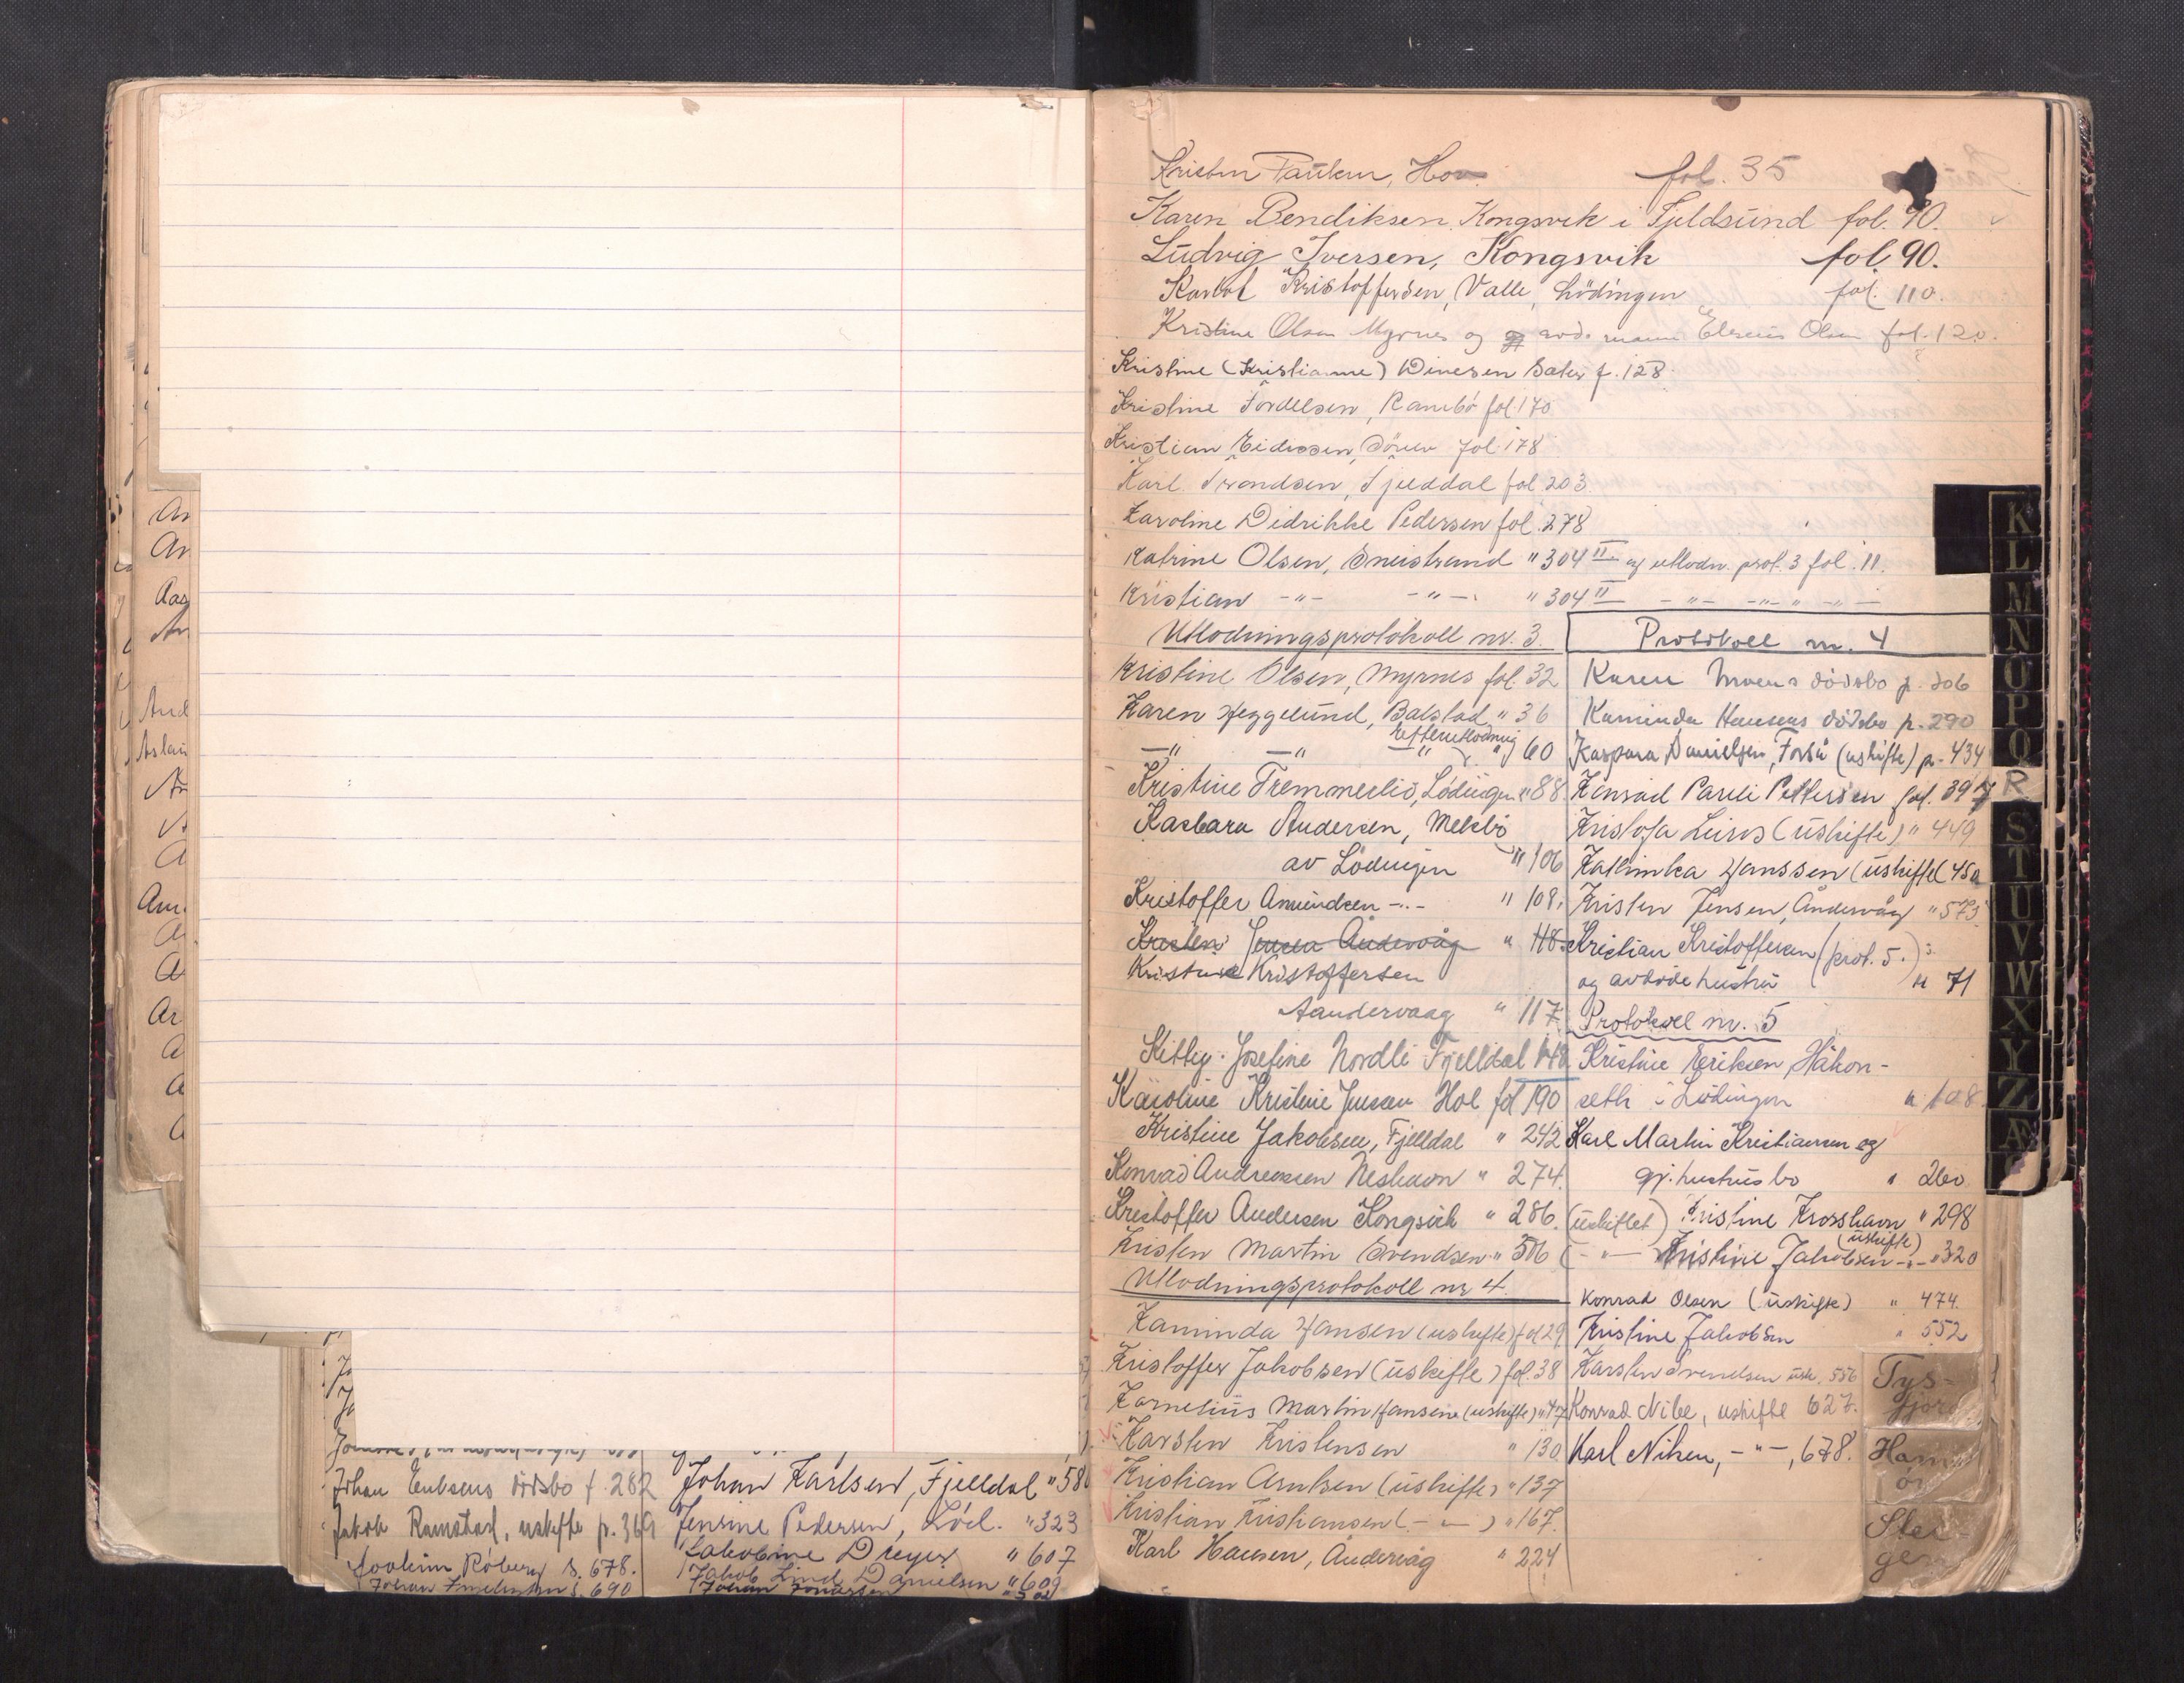 Ar
Ar
Aas
And
Aslau
Johan dödsbo f. 282
Jakob Ramstad, uskifte p. 369
Joakim Röberg s. 678.
s. 690
Johan Karlsen, Fjelldal " 58
Jensine Pedersen, Löd. " 323
Jakobine Dreyer " 607
Jakob Lind Danielsen " 609
Kristen Paulsen, Hov fol. 35
Karen Bendiksen Kongsvik i Fjeldsund fol. 90.
Ludvig Iversen, Kongsvik fol 90.
Kristoffersen, Valle, Lödingen fol. 110.
Kristine Olsen Myrnes og avd. mann Eleseus Olsen fol. 120.
Kristine (Kristianne) Dinesen f. 128
Kristine Tordelsen, Rambö fol. 170
Kristian fol 178
Karl Trondsen, Fjelldal fol 203
Karoline Didrikke Pedersen fol. 278
Katrine Olsen, Sneistrand " 304 II og utlodn. prot. 3 fol. 11.
Kristian -"- -"- " 304 II -"- -"- " -"-
Utlodningsprotokoll nr. 3.
Kristine Olsen, Myrnes fol. 32
Karen Heggelund, Balstad " 36
Efterutlodning
-"- -"- -"- " 60
Kristine Tremmerlid, Lödingen " 88
Kasbara Andersen, Melbö
av Lödingen " 106
Kristoffer Amundsen -..- " 108.
Kristen Jensen Åndervåg " 118
Kristine Kristoffersen
Aandervaag " 117
Kitty Josefine Nordli Fjelldal 148
Karoline Kristine Jensen Hol fol 190
Kristine Jakobsen, Fjelldal " 242
Konrad Andreassen Neshavn " 274.
Kristoffer Andersen Kongsvik " 286.
Kristen Martin Svendsen " 306
Utlodningsprotokoll nr 4.
Kaminda Hansen (uskifte) fol 29
Kristoffer Jakobsen (uskifte) fol. 38
Kornelius Martin Hansen (uskifte) " 47
Karsten Kristensen " 130
Kristian Arntsen (uskifte) " 137
Kristian Kristiansen (-"-) " 167.
Karl Hansen, Åndervåg " 224
Protokoll nr. 4
Karen dödsbo p. 206
Kaminda Hansens dödsbo p. 290
Kaspara Danielsen, Forså (uskifte) p. 434
Konrad Pareli Pettersen fol. 397
Kristofa Leiros (uskifte) " 449
Kathinka Hanssen (uskifte) 450
Kristen Jensen, Åndervåg " 573
Kristian Kristoffersen (prot. 5.)
og avdöde hustru " 71
Protokoll nr. 5
Kristine Eriksen, Håkon-
seth i Lödingen " 108.
Karl Martin Kristiansen og
gj. hustrus bo " 260
(uskiftet) Kristine Krosshavn " 298
(uskifte)
(-"- Kristine Jakobsen -"- " 320
Konrad Olsen (uskifte) " 474.
Kristine Jakobsen " 552
Karsten Svendsen usk. 556
Konrad Nibe, uskifte 627.
Karl Nilsen, -"-, 678.
K
L
M
N
O
P
Q
R
S
T
U
V
W
X
Y
Z
Æ
Tys-
fjord
Ham
ör
Stei-
gen